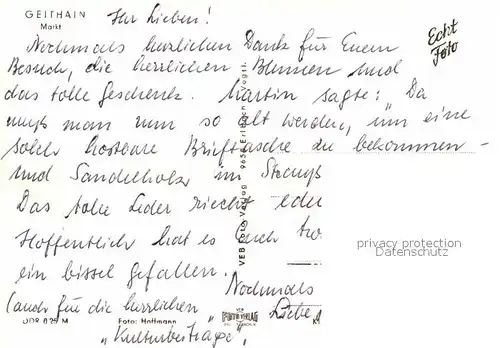 GEITHAIN
Markt
Ihr Lieben!
Echt
Foto
Nochmals herzlichen Dank für Euern
Besuch, die herrlichen Blumen und
das tolle Geschenk. Martin sagte: "Da
muß man nun so alt werden, um eine
solch kostbare Brieftasche zu bekommen -
und Sandelholz im Strauß
Das tolle Leder riecht edel
Hoffentlich hat es Euch
ein bissel gefallen.
Nochmals
(auch für die herrlichen
Liebe
"Kulturbeiträge".
VEB Foto-Verlag 9656 Erlbach Vogtl.
DDR 0.25 M
Foto: Hoffmann
privacy protection
Datenschutz